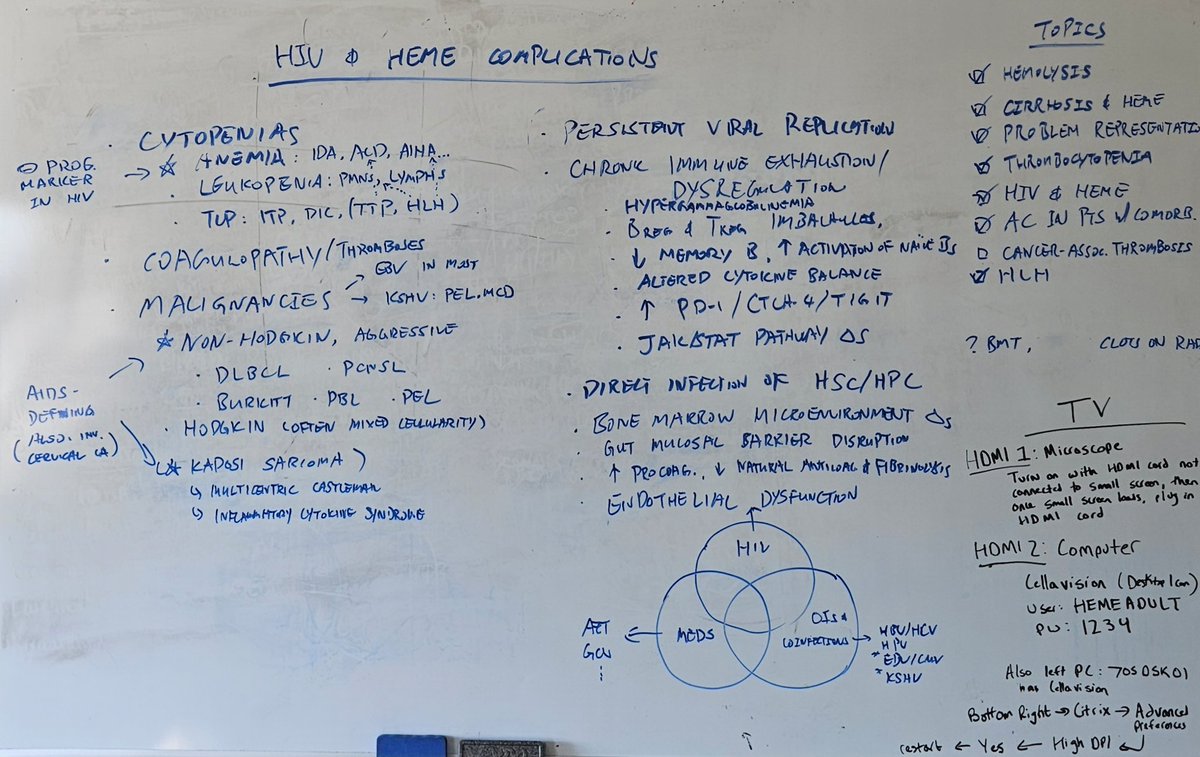 HIV & HEME COMPLICATIONS
CYTOPENIAS
⊖ PROG. MARKER IN HIV →
☆ ANEMIA: IDA, ACD, AIHA...
· LEUKOPENIA: PMNs, LYMPHs
· TCP: ITP, DIC, (TTP, HLH)
· COAGULOPATHY/THROMBOSES
· MALIGNANCIES
→ EBV IN MOST
→ KSHV: PEL, MCD
☆ NON-HODGKIN, AGGRESSIVE
· DLBCL · PCNSL
· BURKITT · PBL · PEL
· HODGKIN (OFTEN MIXED CELLULARITY)
☆ KAPOSI SARCOMA
↳ MULTICENTRIC CASTLEMAN
↳ INFLAMMATORY CYTOKINE SYNDROME
AIDS-
DEFINING
(ALSO: INV.
CERVICAL CA)
· PERSISTENT VIRAL REPLICATION
· CHRONIC IMMUNE EXHAUSTION/
DYSREGULATION
· HYPERGAMMAGLOBULINEMIA
· BREG & TREG IMBALANCES,
↓ MEMORY B, ↑ ACTIVATION OF NAIVE Bs
· ALTERED CYTOKINE BALANCE
· ↑ PD-1/CTLA-4/TIGIT
· JAK/STAT PATHWAY Δs
· DIRECT INFECTION OF HSC/HPC
· BONE MARROW MICROENVIRONMENT Δs
· GUT MUCOSAL BARRIER DISRUPTION
· ↑ PROCOAG. ↓ NATURAL ANTICOAG & FIBRINOLYSIS
· ENDOTHELIAL DYSFUNCTION
HIV
MEDS
OIs &
COINFECTIONS
ART
GCV
HBV/HCV
HPV
* EBV/CMV
* KSHV
TOPICS
☑ HEMOLYSIS
☑ CIRRHOSIS & HEME
☑ PROBLEM REPRESENTATIO
☑ THROMBOCYTOPENIA
☑ HIV & HEME
☑ AC IN PTS w/ COMORB
☐ CANCER-ASSOC. THROMBOSIS
☑ HLH
? BMT, CLOTS ON RAD
TV
HDMI 1: Microscope
Turn on with HDMI cord not
connected to small screen, then
once small screen loads, plug in
HDMI cord
HDMI 2: Computer
Cellavision (Desktop Icon)
User: HEMEADULT
pw: 1234
Also left PC: 70SDSK01
has Cellavision
Bottom Right → Citrix → Advanced
Preferences
restart ← Yes ← High DPI ↵